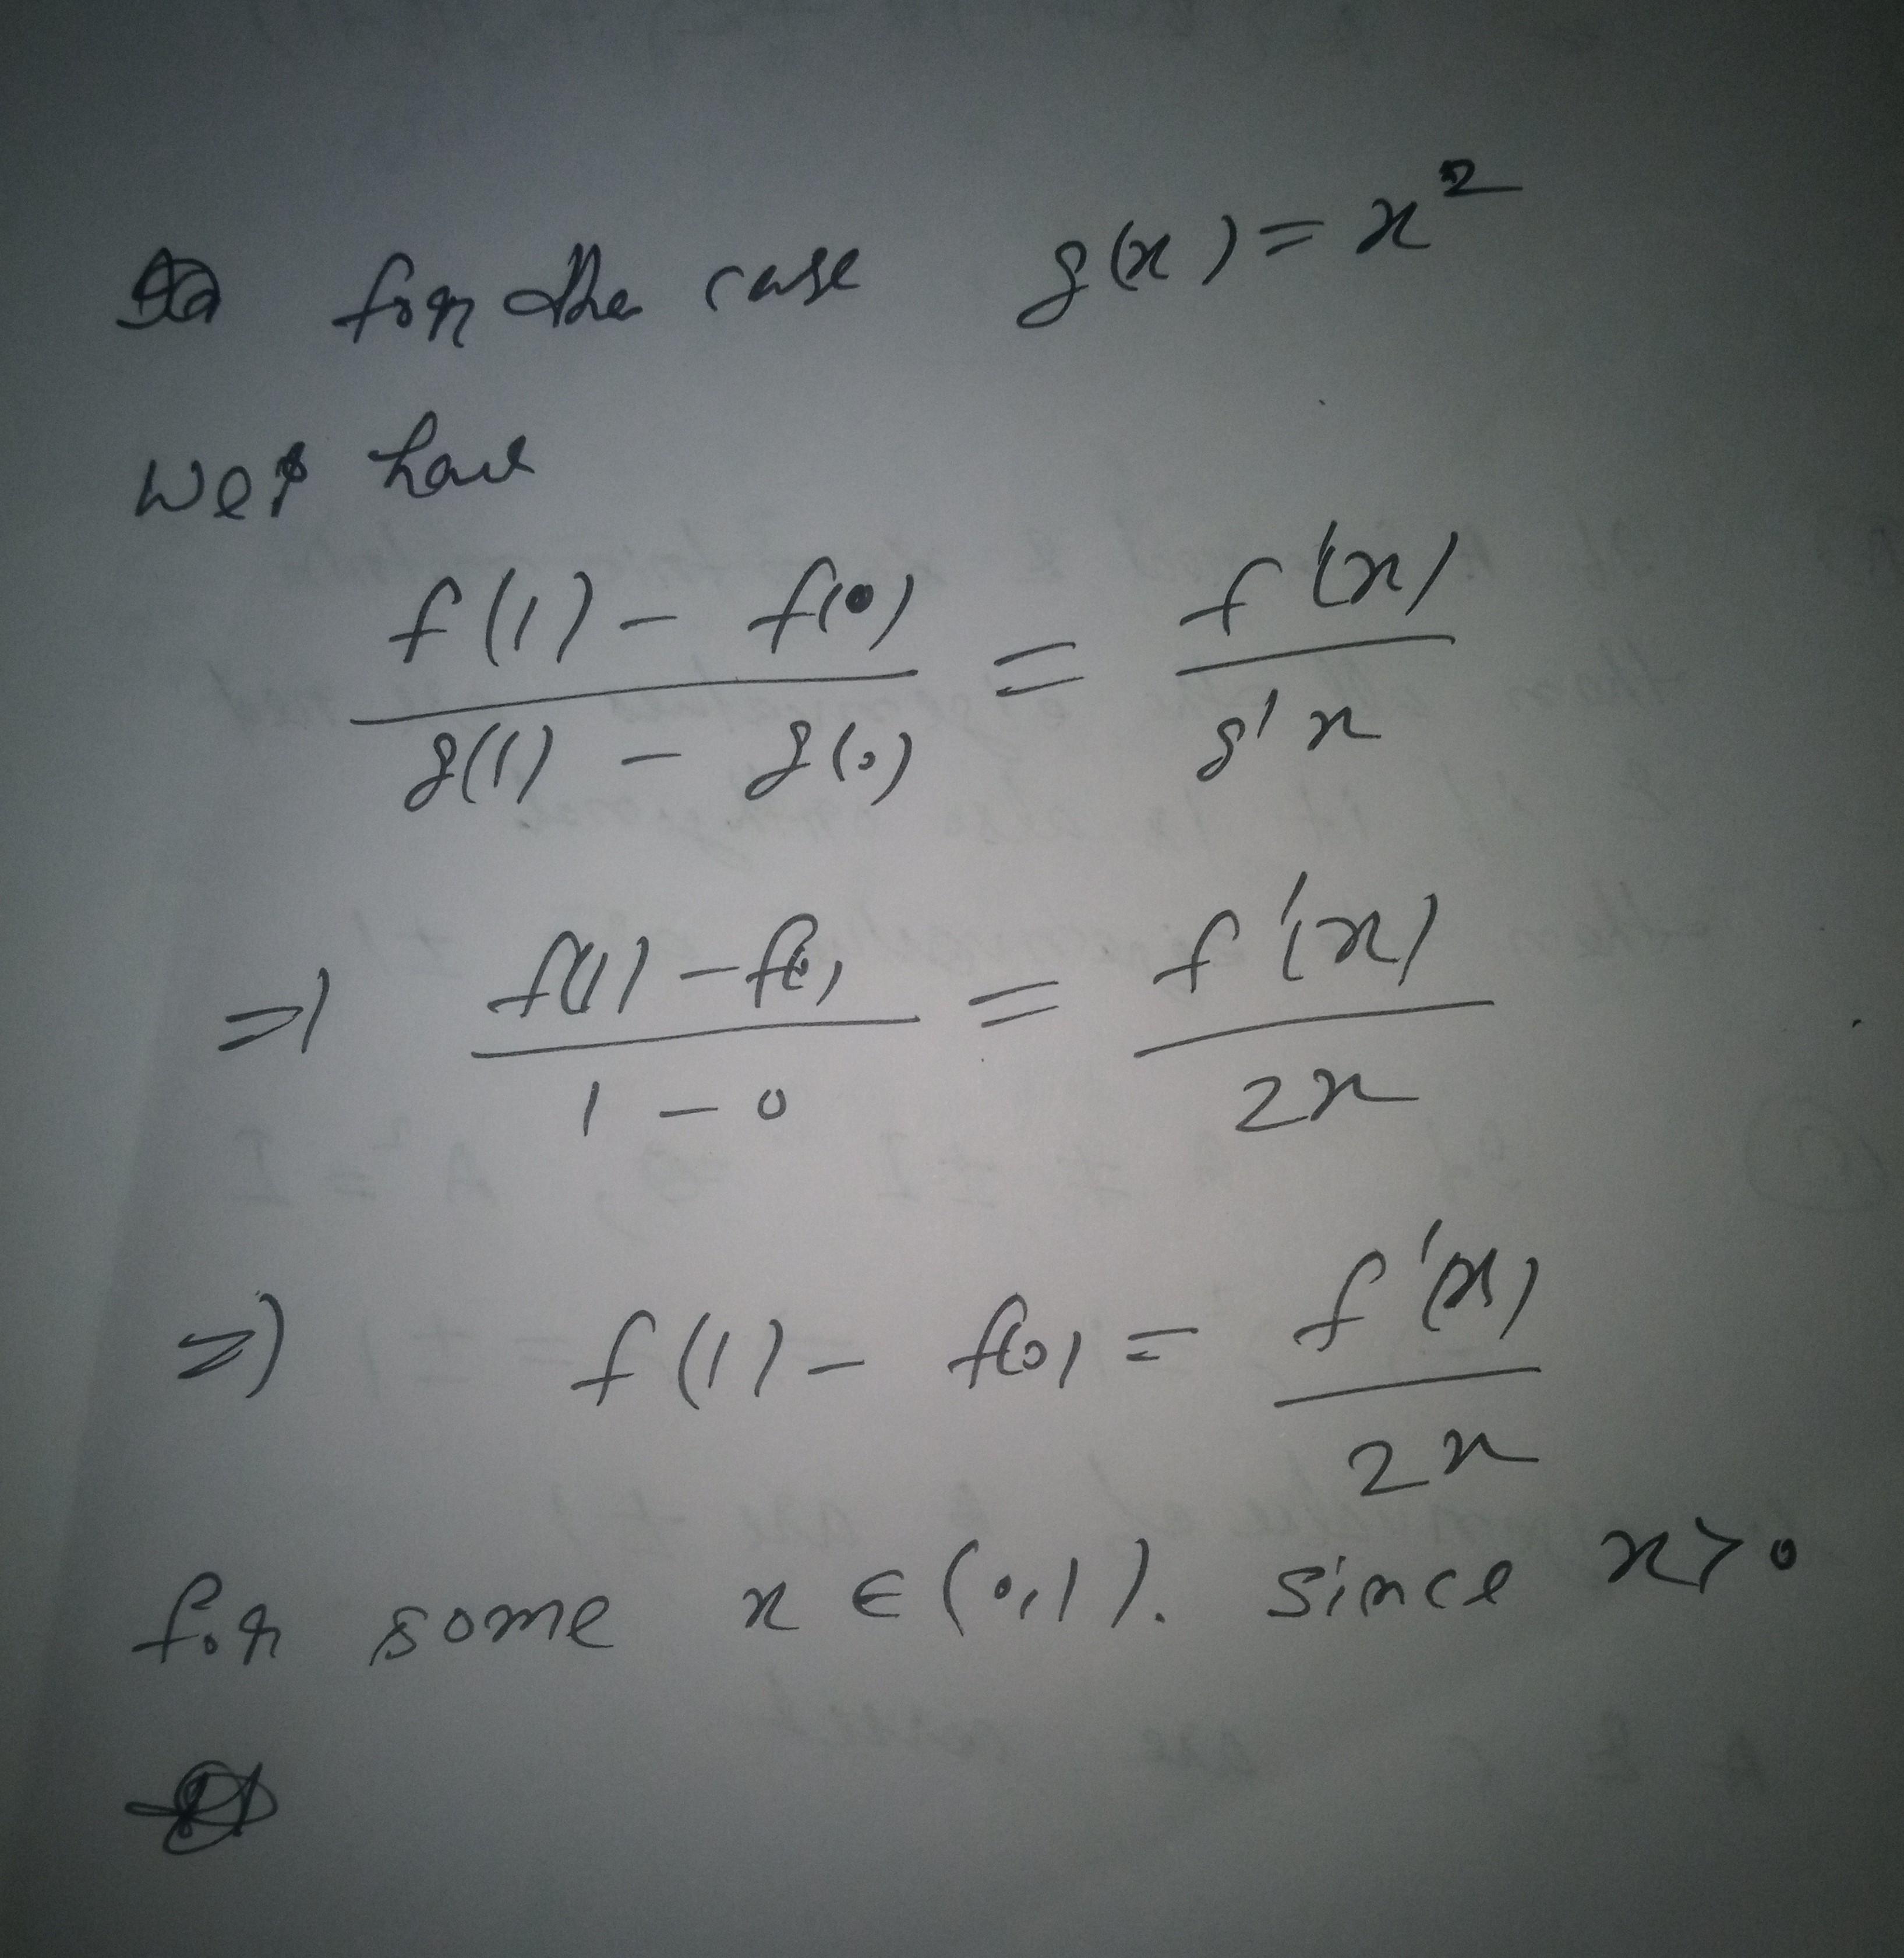 for the case g(x) = x²
we have
f(1) - f(0) / g(1) - g(0) = f'(x) / g'x
=) f(1) - f(0) / 1 - 0 = f'(x) / 2x
=) f(1) - f(0) = f'(x) / 2x
for some x ∈ (0,1). since x>0